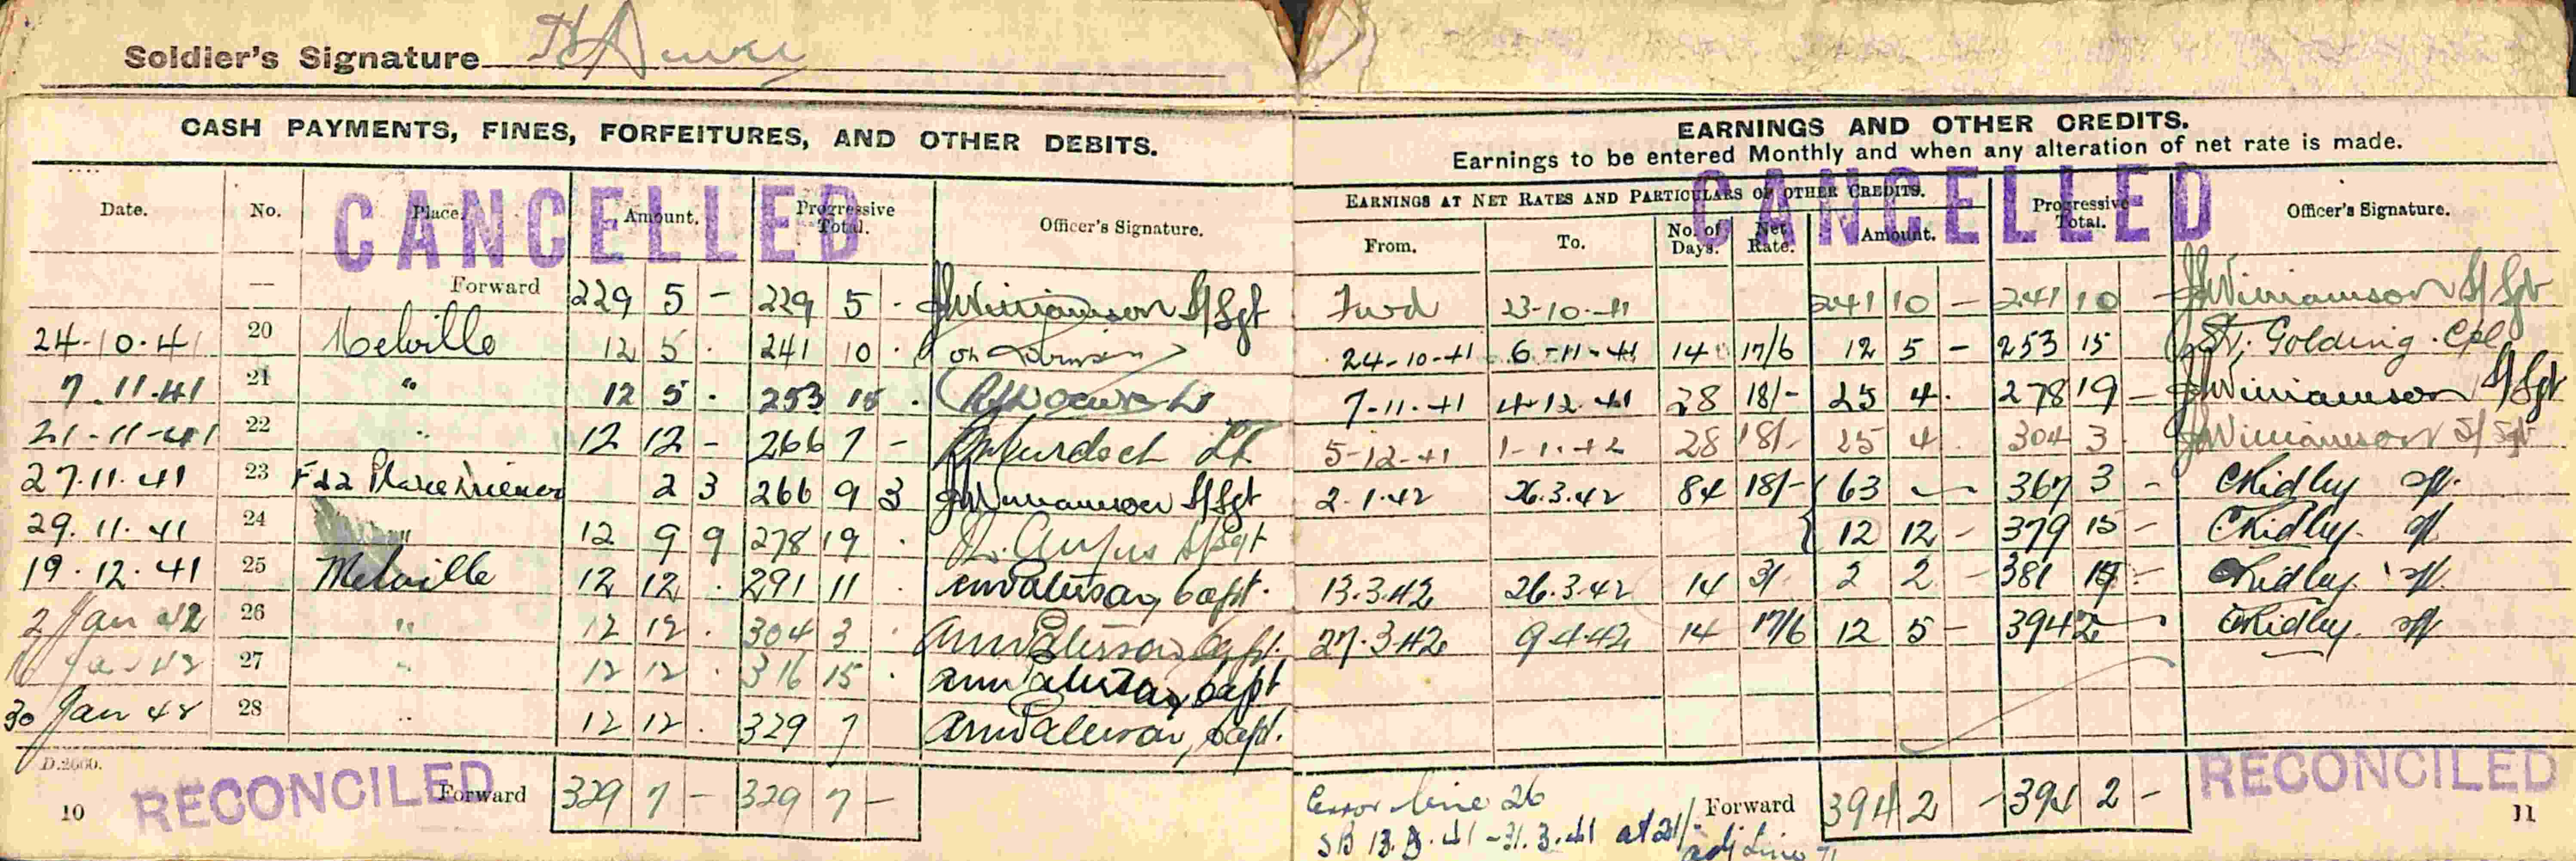 Soldier's Signature
CASH PAYMENTS, FINES, FORFEITURES, AND OTHER DEBITS.
Date. No. Place. Amount. Progressive Total. Officer's Signature.
CANCELLED
— Forward 229 5 – 229 5 · JWilliamson S/Sgt
24-10-41 20 Melville 12 5 · 241 10 ·
7.11.41 21 " 12 5 · 253 15 ·
21-11-41 22 " 12 12 – 266 7 – Murdoch Lt
27.11.41 23 2 3 266 9 3 JWilliamson S/Sgt
29.11.41 24 " 12 9 9 278 19 · Angus S/Sgt
19.12.41 25 Melville 12 12 · 291 11 · Capt.
2 Jan 42 26 " 12 12 · 304 3 · Capt.
16 Jan 42 27 " 12 12 · 316 15 · Capt
30 Jan 42 28 " 12 12 · 329 7 Capt.
D.2660.
RECONCILED
Forward 329 7 – 329 7 –
10
EARNINGS AND OTHER CREDITS.
Earnings to be entered Monthly and when any alteration of net rate is made.
EARNINGS AT NET RATES AND PARTICULARS OF OTHER CREDITS.
From. To. No. of Days. Net Rate. Amount. Progressive Total. Officer's Signature.
CANCELLED
Fwd 23-10-41 241 10 – 241 10 – JWilliamson S/Sgt
24-10-41 6-11-41 14 17/6 12 5 – 253 15 Golding. Cpl
7-11-41 4-12-41 28 18/- 25 4 · 278 19 – JWilliamson S/Sgt
5-12-41 1-1-42 28 18/- 25 4 304 3 · JWilliamson S/Sgt
2-1-42 26.3.42 84 18/- 63 — 367 3 – CRidley
12 12 – 379 15 – CRidley
13.3.42 26.3.42 14 3/ 2 2 – 381 17 – CRidley
27.3.42 9.4.42 14 17/6 12 5 – 394 2 – CRidley
Error line 26
Forward 394 2 – 394 2 –
SB 13.3.41 – 31.3.41 at 21/-
adj line
RECONCILED
11